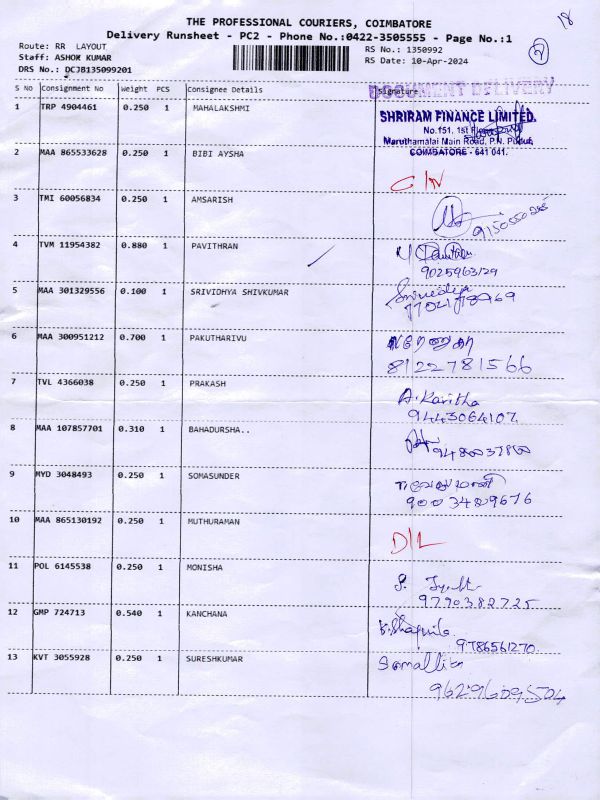 18
THE PROFESSIONAL COURIERS, COIMBATORE
Delivery Runsheet - PC2 - Phone No.:0422-3505555 - Page No.:1
Route: RR LAYOUT
RS No.: 1350992
2
Staff: ASHOK KUMAR
RS Date: 10-Apr-2024
DRS No.: DCJB135099201
DOCUMENT DELIVERY
S No Consignment No Weight PCS Consignee Details Signature
1 TRP 4904461 0.250 1 MAHALAKSHMI
SHRIRAM FINANCE LIMITED.
No.151, 1st Floor,
Maruthamalai Main Road, P.N. Pudur,
COIMBATORE - 641 041.
2 MAA 865533628 0.250 1 BIBI AYSHA
C/N
3 TMI 60056834 0.250 1 AMSARISH
4 TVM 11954382 0.880 1 PAVITHRAN
9025963129
5 MAA 301329556 0.100 1 SRIVIDHYA SHIVKUMAR
Srividya
6 MAA 300951212 0.700 1 PAKUTHARIVU
8122781566
7 TVL 4366038 0.250 1 PRAKASH
A. Kavitha
9443064107
8 MAA 107857701 0.310 1 BAHADURSHA..
9 MYD 3048493 0.250 1 SOMASUNDER
9003489676
10 MAA 865130192 0.250 1 MUTHURAMAN
D/L
11 POL 6145538 0.250 1 MONISHA
9790382725
12 GMP 724713 0.540 1 KANCHANA
9786561270
13 KVT 3055928 0.250 1 SURESHKUMAR
9629609504